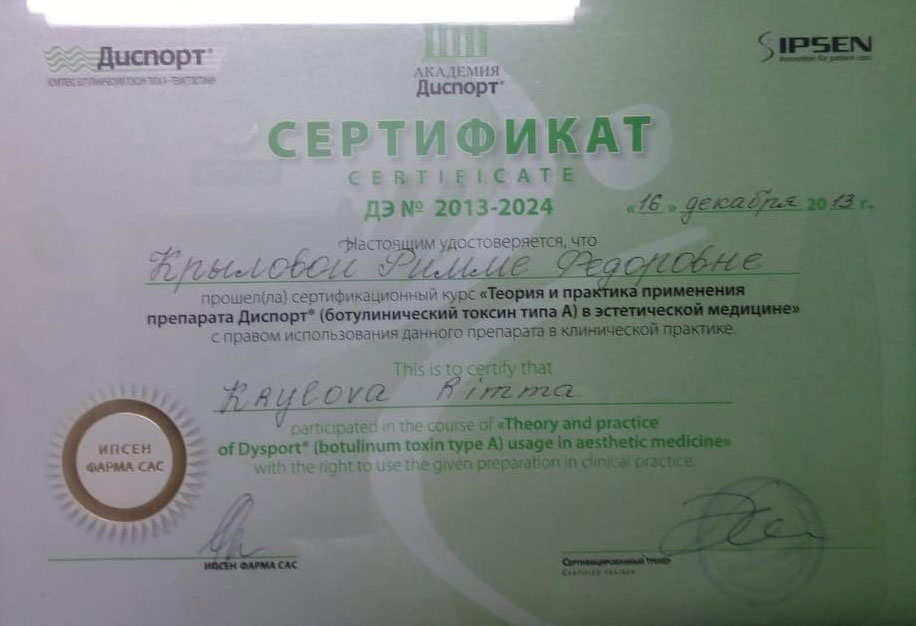 Диспорт®
IPSEN
Innovation for patient care
АКАДЕМИЯ
Диспорт®
СЕРТИФИКАТ
CERTIFICATE
ДЭ № 2013-2024
«16» декабря 2013 г.
Настоящим удостоверяется, что
Крыловой Римме Федоровне
прошел(ла) сертификационный курс «Теория и практика применения
препарата Диспорт® (ботулинический токсин типа А) в эстетической медицине»
с правом использования данного препарата в клинической практике.
This is to certify that
Krylova Rimma
participated in the course of «Theory and practice
of Dysport® (botulinum toxin type A) usage in aesthetic medicine»
with the right to use the given preparation in clinical practice.
ИПСЕН
ФАРМА САС
ИПСЕН ФАРМА САС
Сертифицированный тренер
Certified trainer